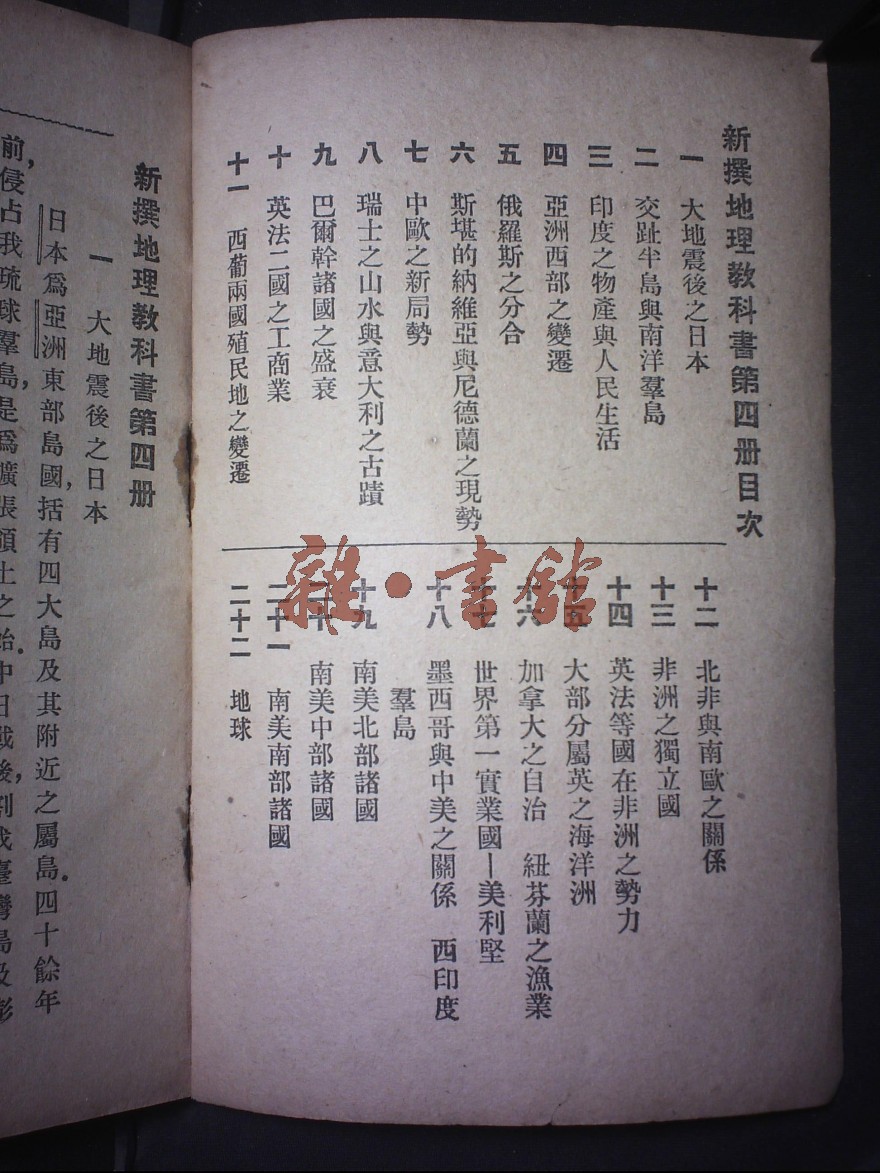 新撰地理教科書第四册目次
一 大地震後之日本
二 交趾半島與南洋羣島
三 印度之物產與人民生活
四 亞洲西部之變遷
五 俄羅斯之分合
六 斯堪的納維亞與尼德蘭之現勢
七 中歐之新局勢
八 瑞士之山水與意大利之古蹟
九 巴爾幹諸國之盛衰
十 英法二國之工商業
十一 西葡兩國殖民地之變遷
十二 北非與南歐之關係
十三 非洲之獨立國
十四 英法等國在非洲之勢力
十五 大部分屬英之海洋洲
十六 加拿大之自治 紐芬蘭之漁業
十七 世界第一實業國—美利堅
十八 墨西哥與中美之關係 西印度
羣島
十九 南美北部諸國
二十 南美中部諸國
二十一 南美南部諸國
二十二 地球
雜·書館
新撰地理教科書第四册
一 大地震後之日本
日本爲亞洲東部島國,括有四大島及其附近之屬島。四十餘年
前,侵占我琉球羣島,是爲擴張領土之始。中日戰後,割我臺灣島及彭